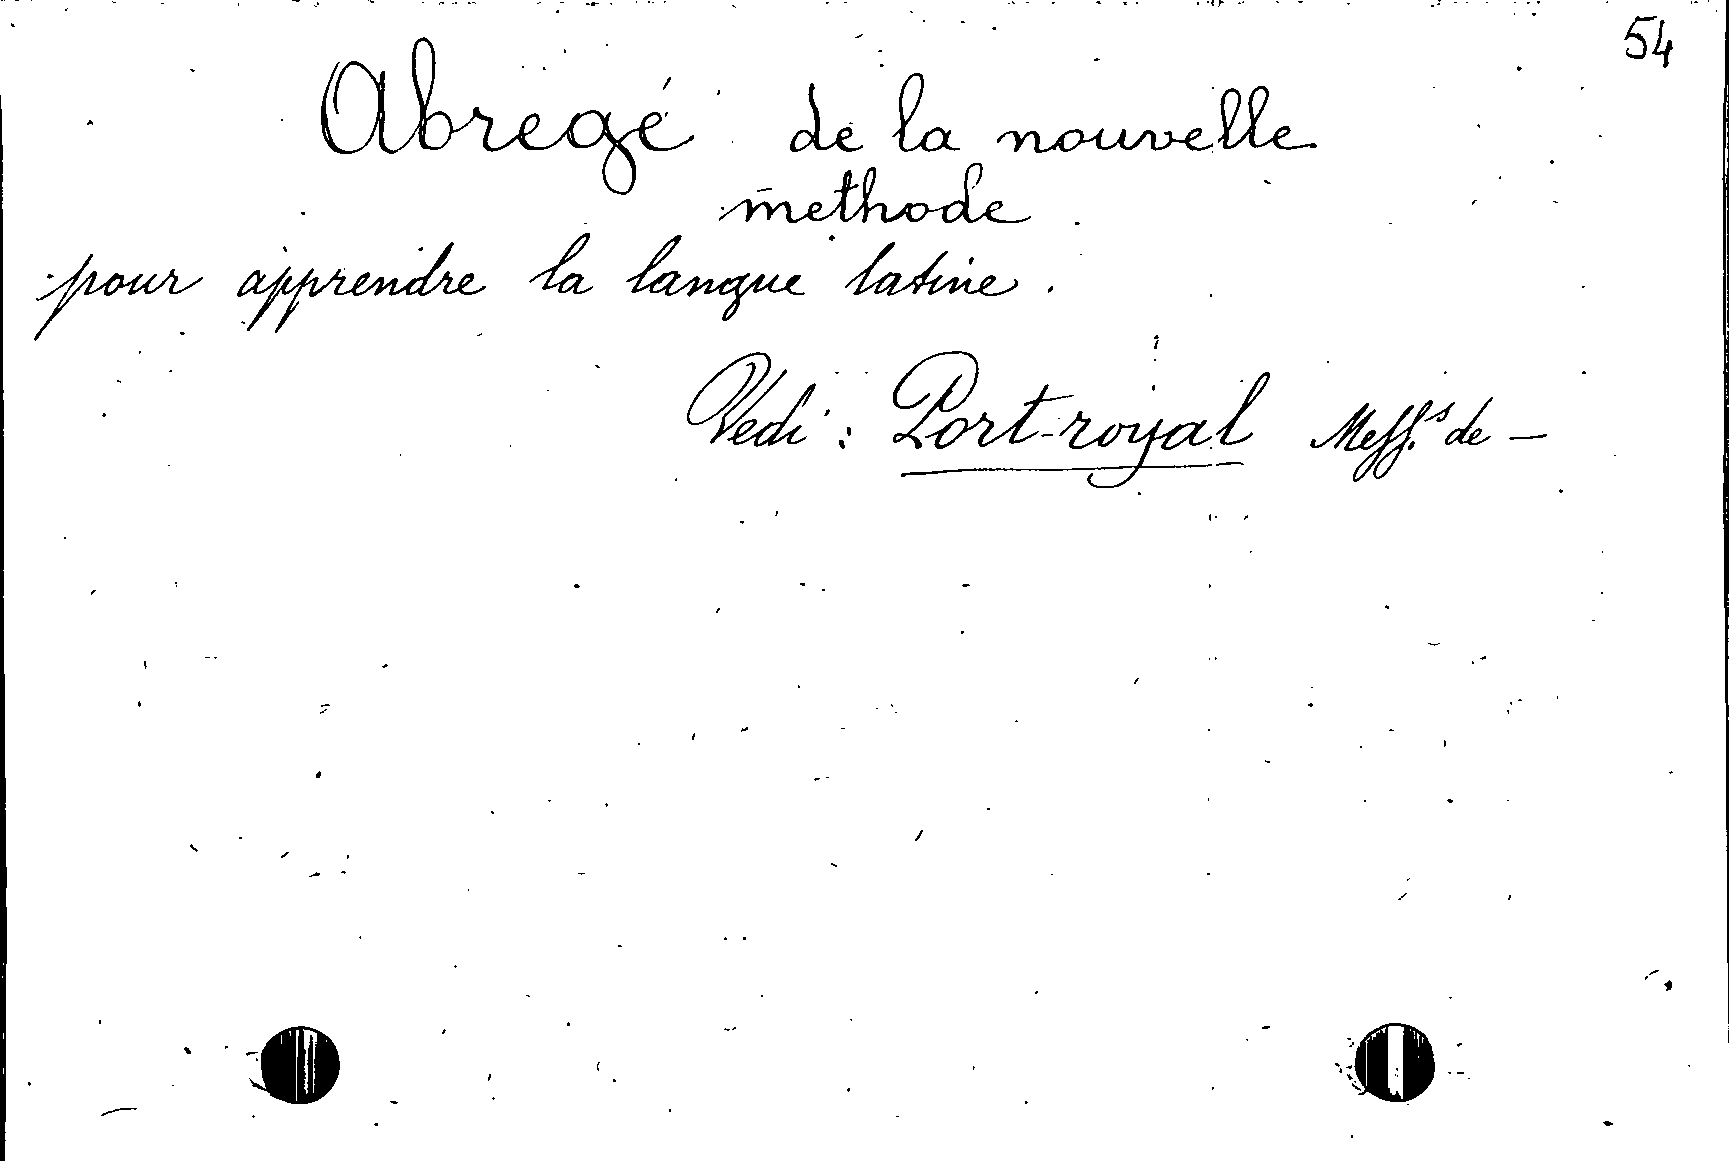 54
Abregé de la nouvelle
methode
pour apprendre la langue latine.
Vedi: Port-royal Meff.s de —